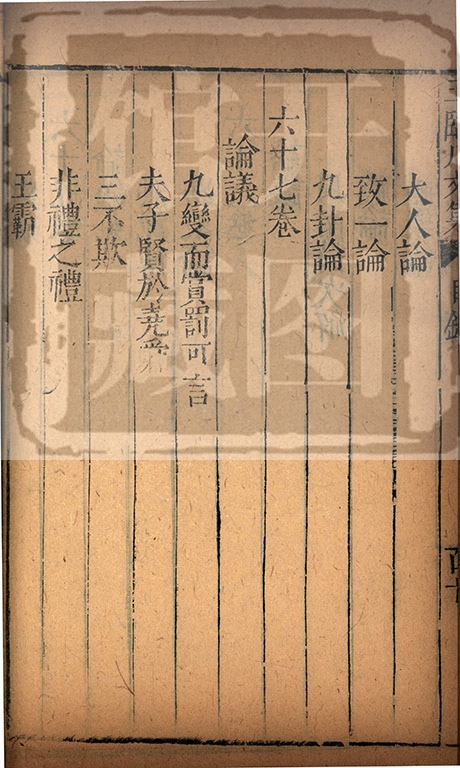 大人論
致一論
九卦論
六十七卷
論議
九變而賞罰可言
夫子賢於堯舜
三不欺
非禮之禮
王霸